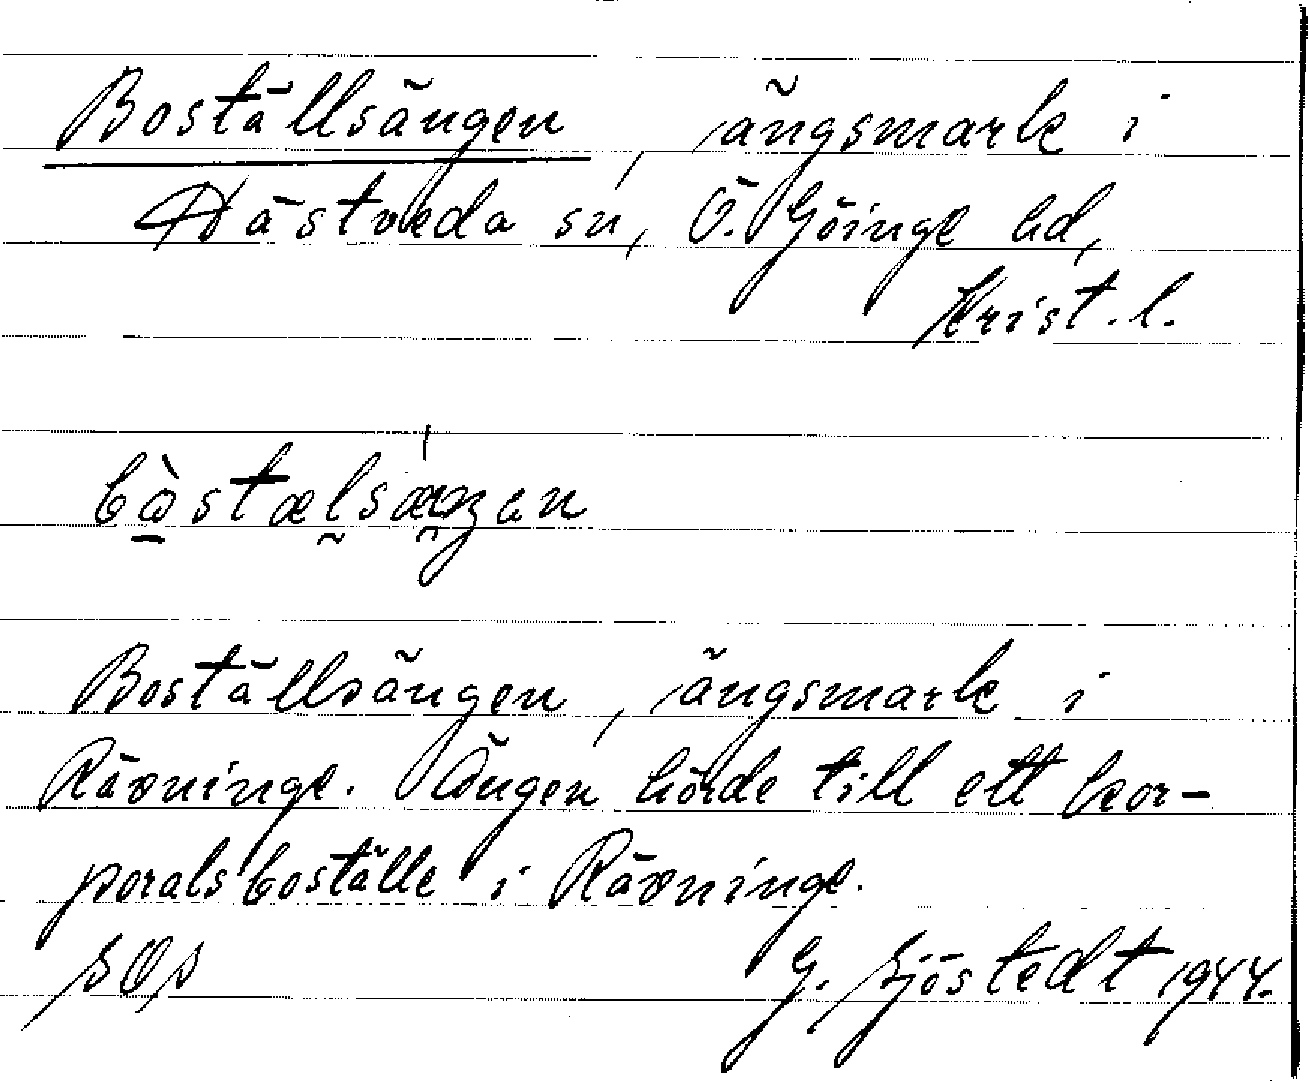 Boställsängen, ängsmark i
Hästveda sn, Ö. Göinge hd,
Krist. l.
Boställsängen, ängsmark i
Rävninge. Ängen hörde till ett kor-
poralsboställe i Rävninge.
G. Sjöstedt 1944.